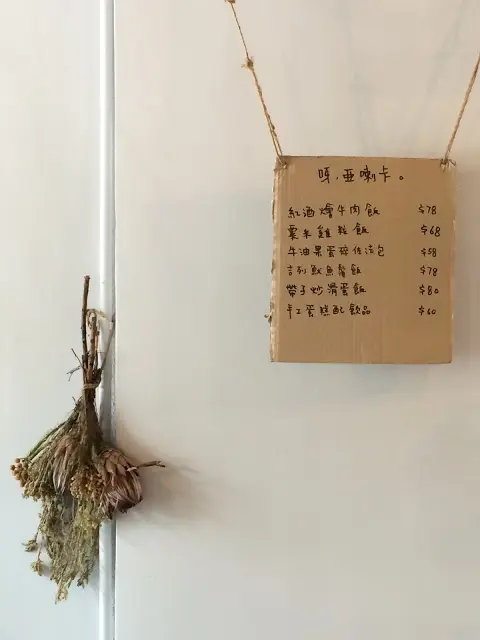 呀,亞喇卡。
紅酒燴牛肉飯 $78
粟米雞粒飯 $68
牛油果蛋碎法包 $58
吉列魷魚鬚飯 $78
帶子炒滑蛋飯 $80
手工蛋糕配飲品 $60